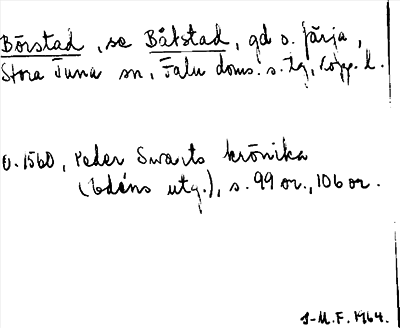 Börstad, se Båtstad, gd o. färja,
Stora Tuna sn, Falu doms. s. tg, Kopp. l.
O. 1560, Peder Swarts krönika
(Edéns utg.), s. 99 or., 106 or.
J-M.F. 1964.